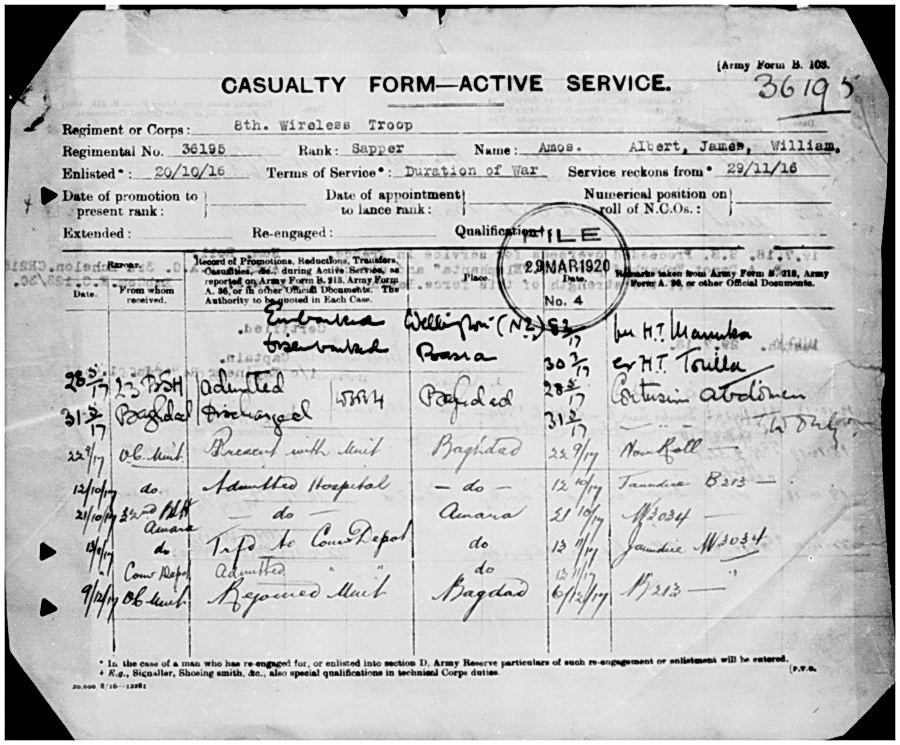 [Army Form B. 103.
CASUALTY FORM—ACTIVE SERVICE.
36195
Regiment or Corps: 8th. Wireless Troop
Regimental No. 36195 Rank: Sapper Name: Amos. Albert, James, William,
Enlisted*: 20/10/16 Terms of Service*: Duration of War Service reckons from* 29/11/16
Date of promotion to present rank: Date of appointment to lance rank: Numerical position on roll of N.C.Os.:
Extended: Re-engaged: Qualification†
FILE
29 MAR 1920
No. 4
Report.
Date. From whom received.
Record of Promotions, Reductions, Transfers, Casualties, &c., during Active Service, as reported on Army Form B. 213, Army Form A. 36, or in other Official Documents. The Authority to be quoted in Each Case.
Place. Date.
Remarks taken from Army Form B. 213, Army Form A. 36, or other Official Documents.
Embarked Wellington (NZ) /17 per H.T. Manuka
Disembarked Basra 30 /17 ex H.T. Torilla
28 5/17 23 BSH Admitted Baghdad 28 5/17 Contusion abdomen
31 5/17 Baghdad Discharged 31 5/17
22 9/17 O.C. Unit. Present with Unit Baghdad 22 9/17 Nom Roll —
12/10/17 do Admitted Hospital — do — 12 10/17 Jaundice B213 —
21/10/17 32nd Amara — do — Amara 21 10/17 W3034 —
13/11/17 do Trf'd to Conv Depot do 13 11/17 Jaundice W3034
Conv Depot Admitted " " do 13 11/17 "
9/12/17 O.C. Unit. Rejoined Unit Bagdad 6/12/17 B213 —
* In the case of a man who has re-engaged for, or enlisted into section D, Army Reserve particulars of such re-engagement or enlistment will be entered.
† E.g., Signaller, Shoeing smith, &c., also special qualifications in technical Corps duties.
[P.T.O.
20,000/8/16—12281